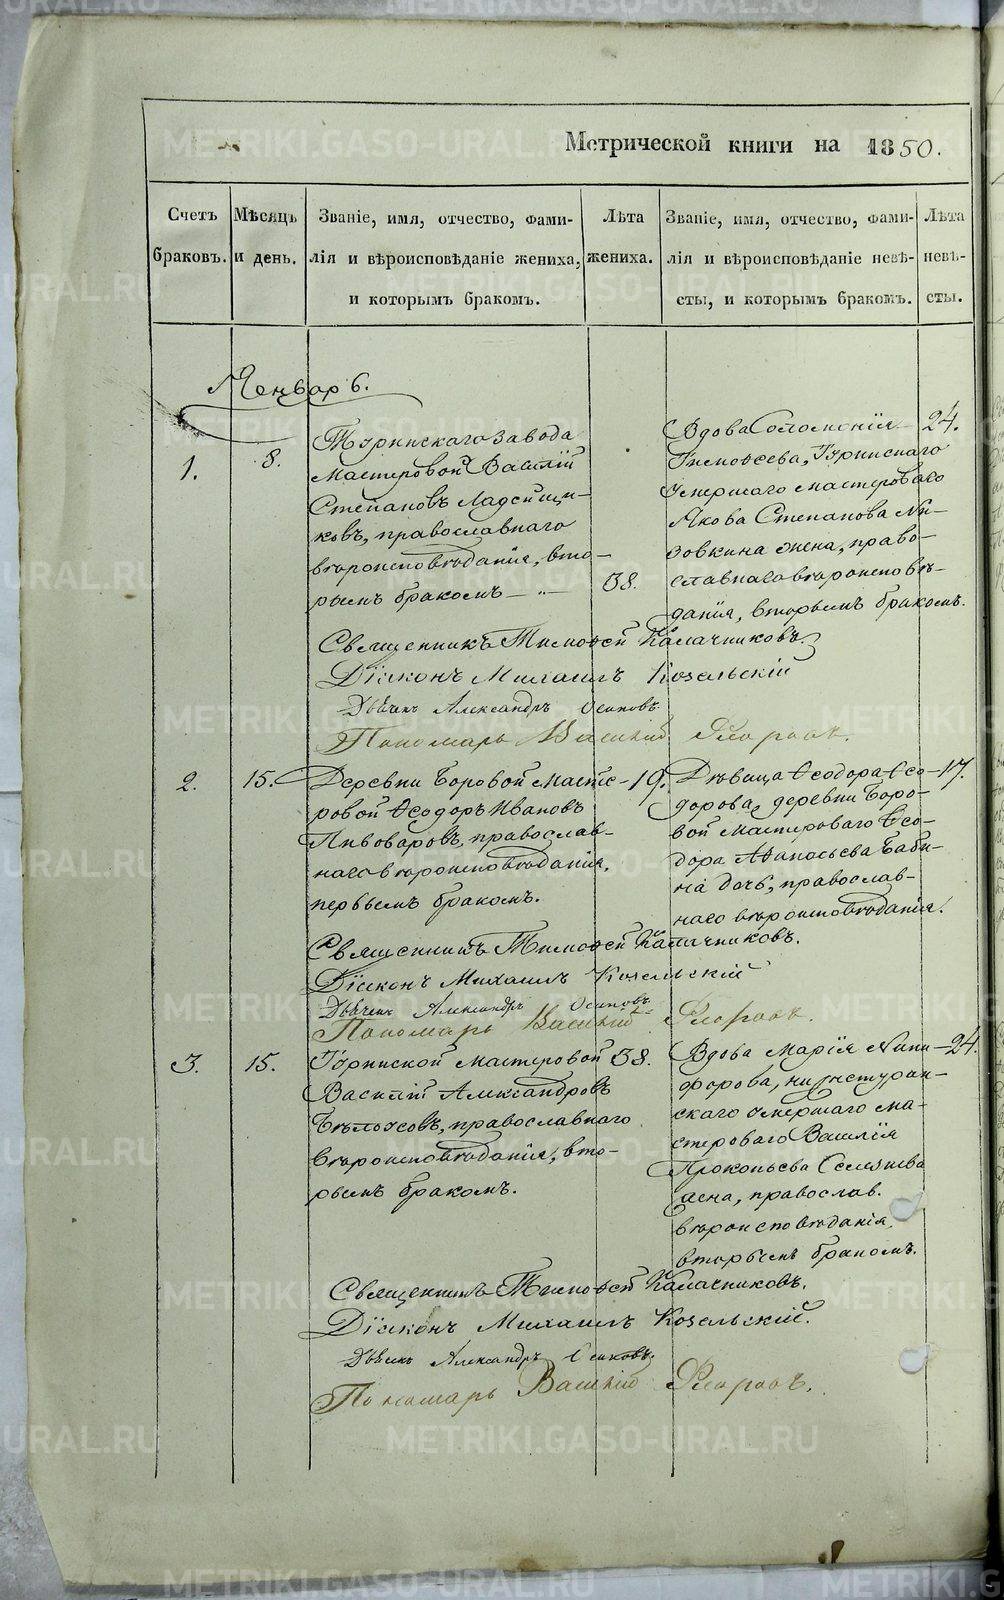 Метрической книги на 1850.
Счетъ браковъ.
Мѣсяцъ и день.
Званіе, имя, отчество, фами-
лія и вѣроисповѣданіе жениха,
и которымъ бракомъ.
Лѣта жениха.
Званіе, имя, отчество, фами-
лія и вѣроисповѣданіе невѣ-
сты, и которымъ бракомъ.
Лѣта невѣ-
сты.
Генварь.
1.
8.
Туринскаго завода
мастеровой Василій
Степановъ Ладейщи-
ковъ, православнаго
вѣроисповѣданія, вто-
рымъ бракомъ — „ —
38.
Вдова Соломонія
Тимофеева, Туринскаго
умершаго мастероваго
Якова Степанова
зовкина жена, право-
славнаго вѣроисповѣ-
данія, вторымъ бракомъ.
24.
Священникъ Тимофей Калачниковъ.
Діаконъ Михаилъ Козельскій
Дьячекъ Александръ Осиповъ
Пономарь Василій Флоровъ.
2.
15.
Деревни Боровой масте-
ровой Ѳеодоръ Ивановъ
Пивоваровъ, православ-
наго вѣроисповѣданія,
первымъ бракомъ.
19.
Дѣвица Ѳеодора Ѳео-
дорова, деревни Боро-
вой мастероваго Ѳео-
дора Аѳанасьева Баби-
на дочь, православ-
наго вѣроисповѣданія.
17.
Священникъ Тимофей Калачниковъ.
Діаконъ Михаилъ Козельскій
Дьячекъ Александръ Осиповъ.
Пономарь Василій Флоровъ.
3.
15.
Туринской мастеровой
Василій Александровъ
Бѣлоусовъ, православнаго
вѣроисповѣданія, вто-
рымъ бракомъ.
38.
Вдова Марія Ники-
форова, нижнетурин-
скаго умершаго ма-
стероваго Василія
Прокопьева Селезнева
жена, православ.
вѣроисповѣданія,
вторымъ бракомъ.
24.
Священникъ Тимофей Калачниковъ.
Діаконъ Михаилъ Козельскій.
Дьячекъ Александръ Осиповъ.
Пономарь Василій Флоровъ.
METRIKI.GASO-URAL.RU